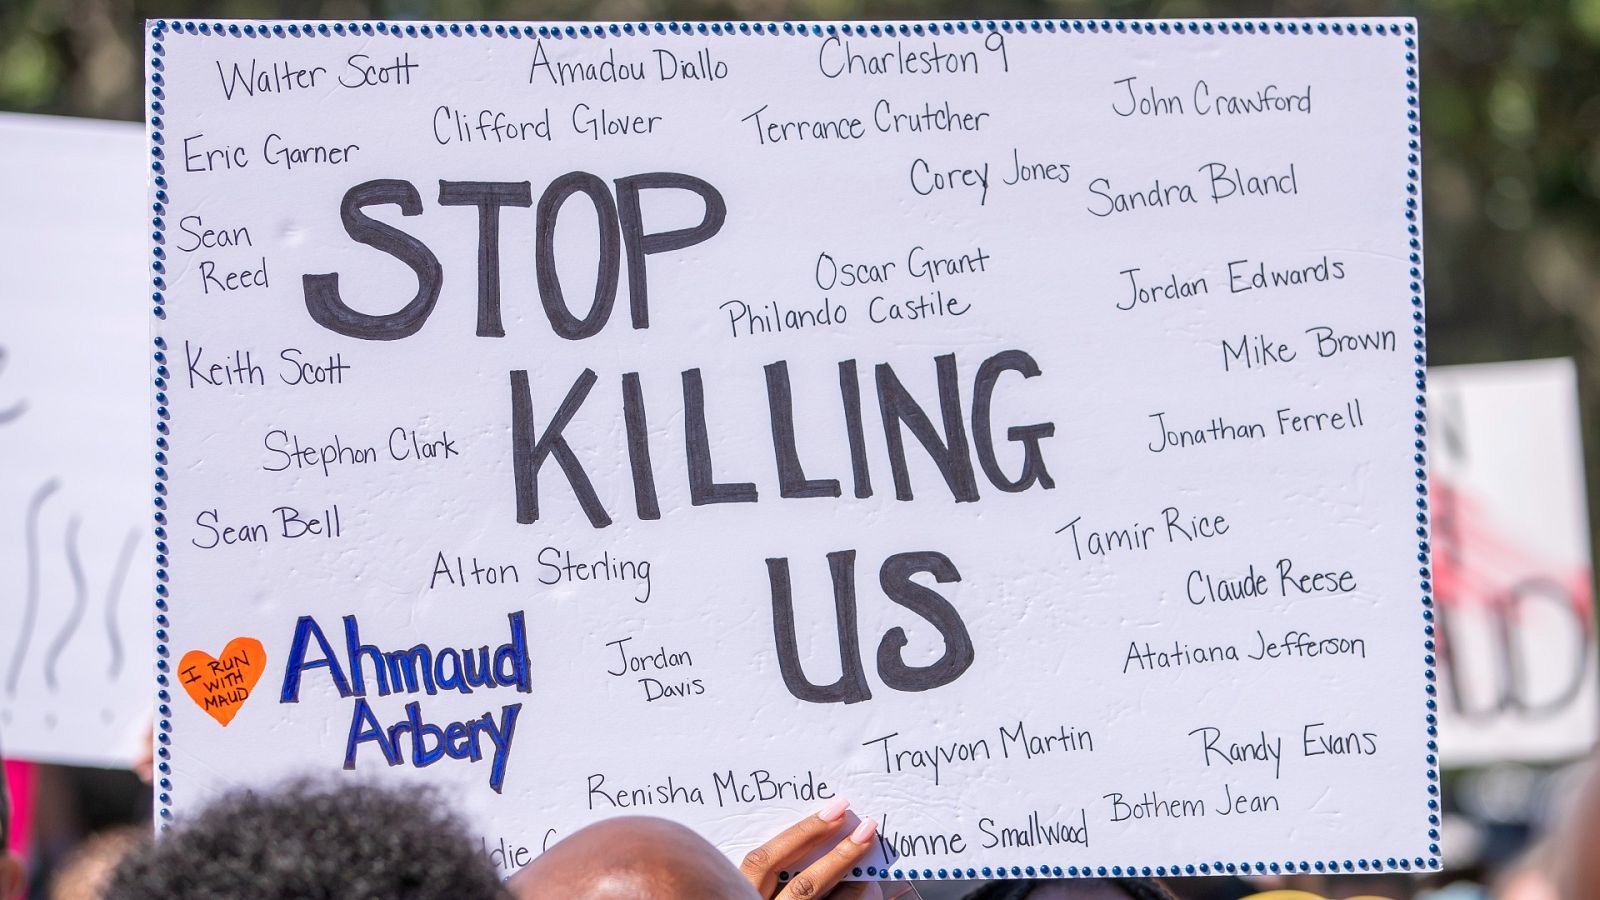 Walter Scott
Amadou Diallo
Charleston 9
John Crawford
Eric Garner
Clifford Glover
Terrance Crutcher
Corey Jones
Sandra Bland
Sean
Reed
STOP
Oscar Grant
Jordan Edwards
Philando Castile
Mike Brown
Keith Scott
KILLING
Jonathan Ferrell
Stephon Clark
Sean Bell
Tamir Rice
Alton Sterling
US
Claude Reese
I RUN
WITH
MAUD
Ahmaud
Arbery
Jordan
Davis
Atatiana Jefferson
Trayvon Martin
Randy Evans
Renisha McBride
Bothem Jean
Yvonne Smallwood